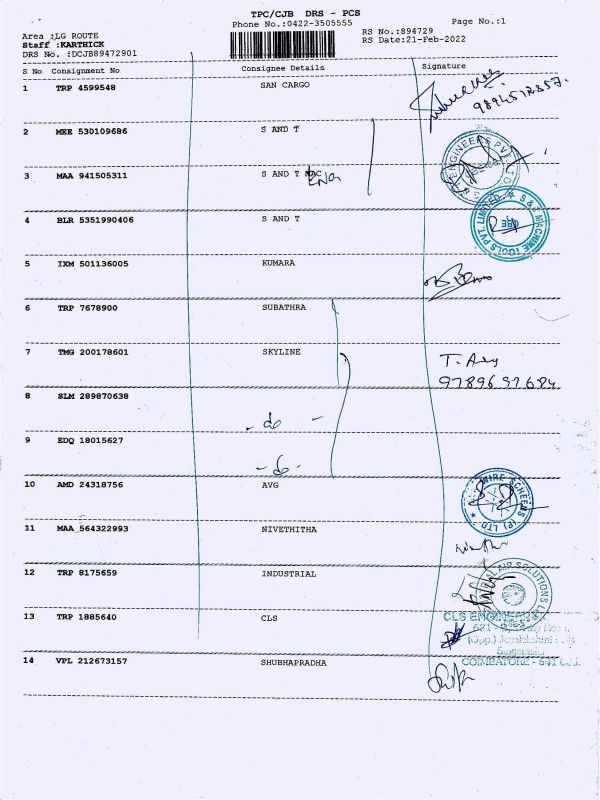 TPC/CJB DRS - PCS
Phone No.:0422-3505555
Page No.:1
Area :LG ROUTE
Staff :KARTHICK
DRS No. :DCJB89472901
RS No.:894729
RS Date:21-Feb-2022
S No Consignment No Consignee Details Signature
1 TRP 4599548 SAN CARGO
2 MEE 530109686 S AND T
3 MAA 941505311 S AND T MAC
4 BLR 5351990406 S AND T
5 IXM 501136005 KUMARA
6 TRP 7678900 SUBATHRA
7 TMG 200178601 SKYLINE
T. Any
8 SLM 289870638 - do -
9 EDQ 18015627 - do -
10 AMD 24318756 AVG
WIRE SCREENS (P) LTD
11 MAA 564322993 NIVETHITHA
12 TRP 8175659 INDUSTRIAL
AIR SOLUTIONS
13 TRP 1885640 CLS
CLS ENGINEER
COIMBATORE - 641
14 VPL 212673157 SHUBHAPRADHA
S&T MACHINE TOOLS PVT. LIMITED
ENGINEERS PVT. LTD